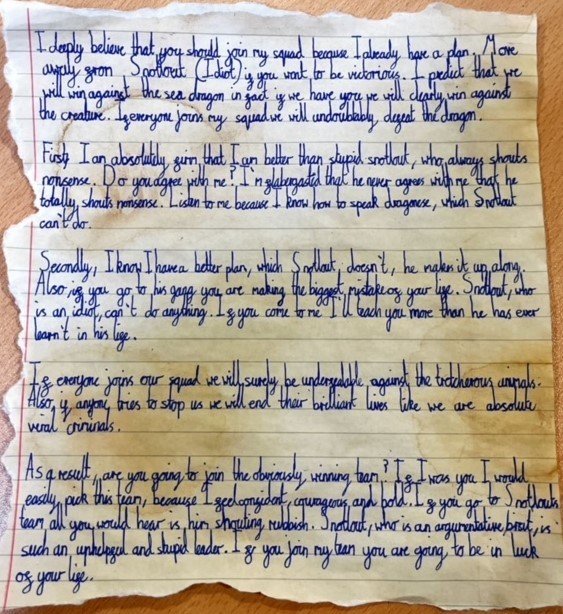 I deeply believe that you should join my squad because I already have a plan. Move
away from Snotlout (Idiot) if you want to be victorious. I predict that we
will win against the sea dragon in fact if we have you we will clearly win against
the creature. If everyone joins my squad we will undoubtably defeat the dragon.
First, I am absolutely firm that I am better than stupid snotlout, who always shouts
nonsense. Do you agree with me? I'm flabergasted that he never agrees with me that he
totally shouts nonsense. Listen to me because I know how to speak dragonese, which Snotlout
can't do.
Secondly, I know I have a better plan, which Snotlout, doesn't, he makes it up along.
Also, if you go to his gang you are making the biggest mistake of your life. Snotlout, who
is an idiot, can't do anything. If you come to me I'll teach you more than he has ever
learn't in his life.
If everyone joins our squad we will surely be undefeatable against the tretcherous animals.
Also, if anyone tries to stop us we will end their brilliant lives like we are absolute
viral criminals.
As a result, are you going to join the obviously, winning team? If I was you I would
easily, pick this team, because I feel confident, courageous, and bold. If you go to Snotlouts
team, all you would hear is, him shouting, rubbish. Snotlout, who is an argumentative brat, is
such an unhelpful and stupid leader. If you join my team you are going, to be in luck
of your life.